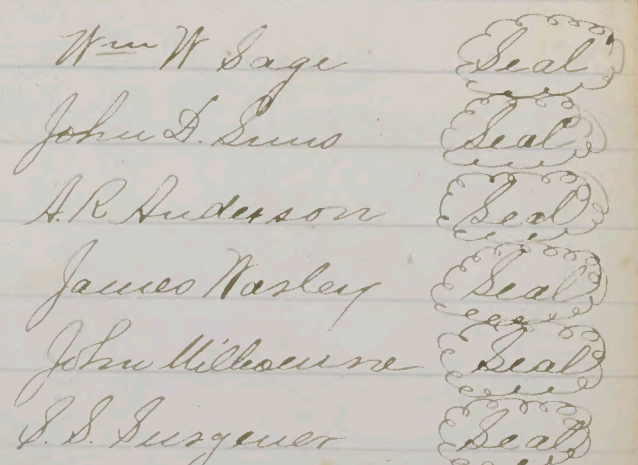 Wm W Sage Seal
John D. Sims Seal
A. R. Anderson Seal
James Wasley Seal
John Milhouse Seal
S. S. Surgener Seal